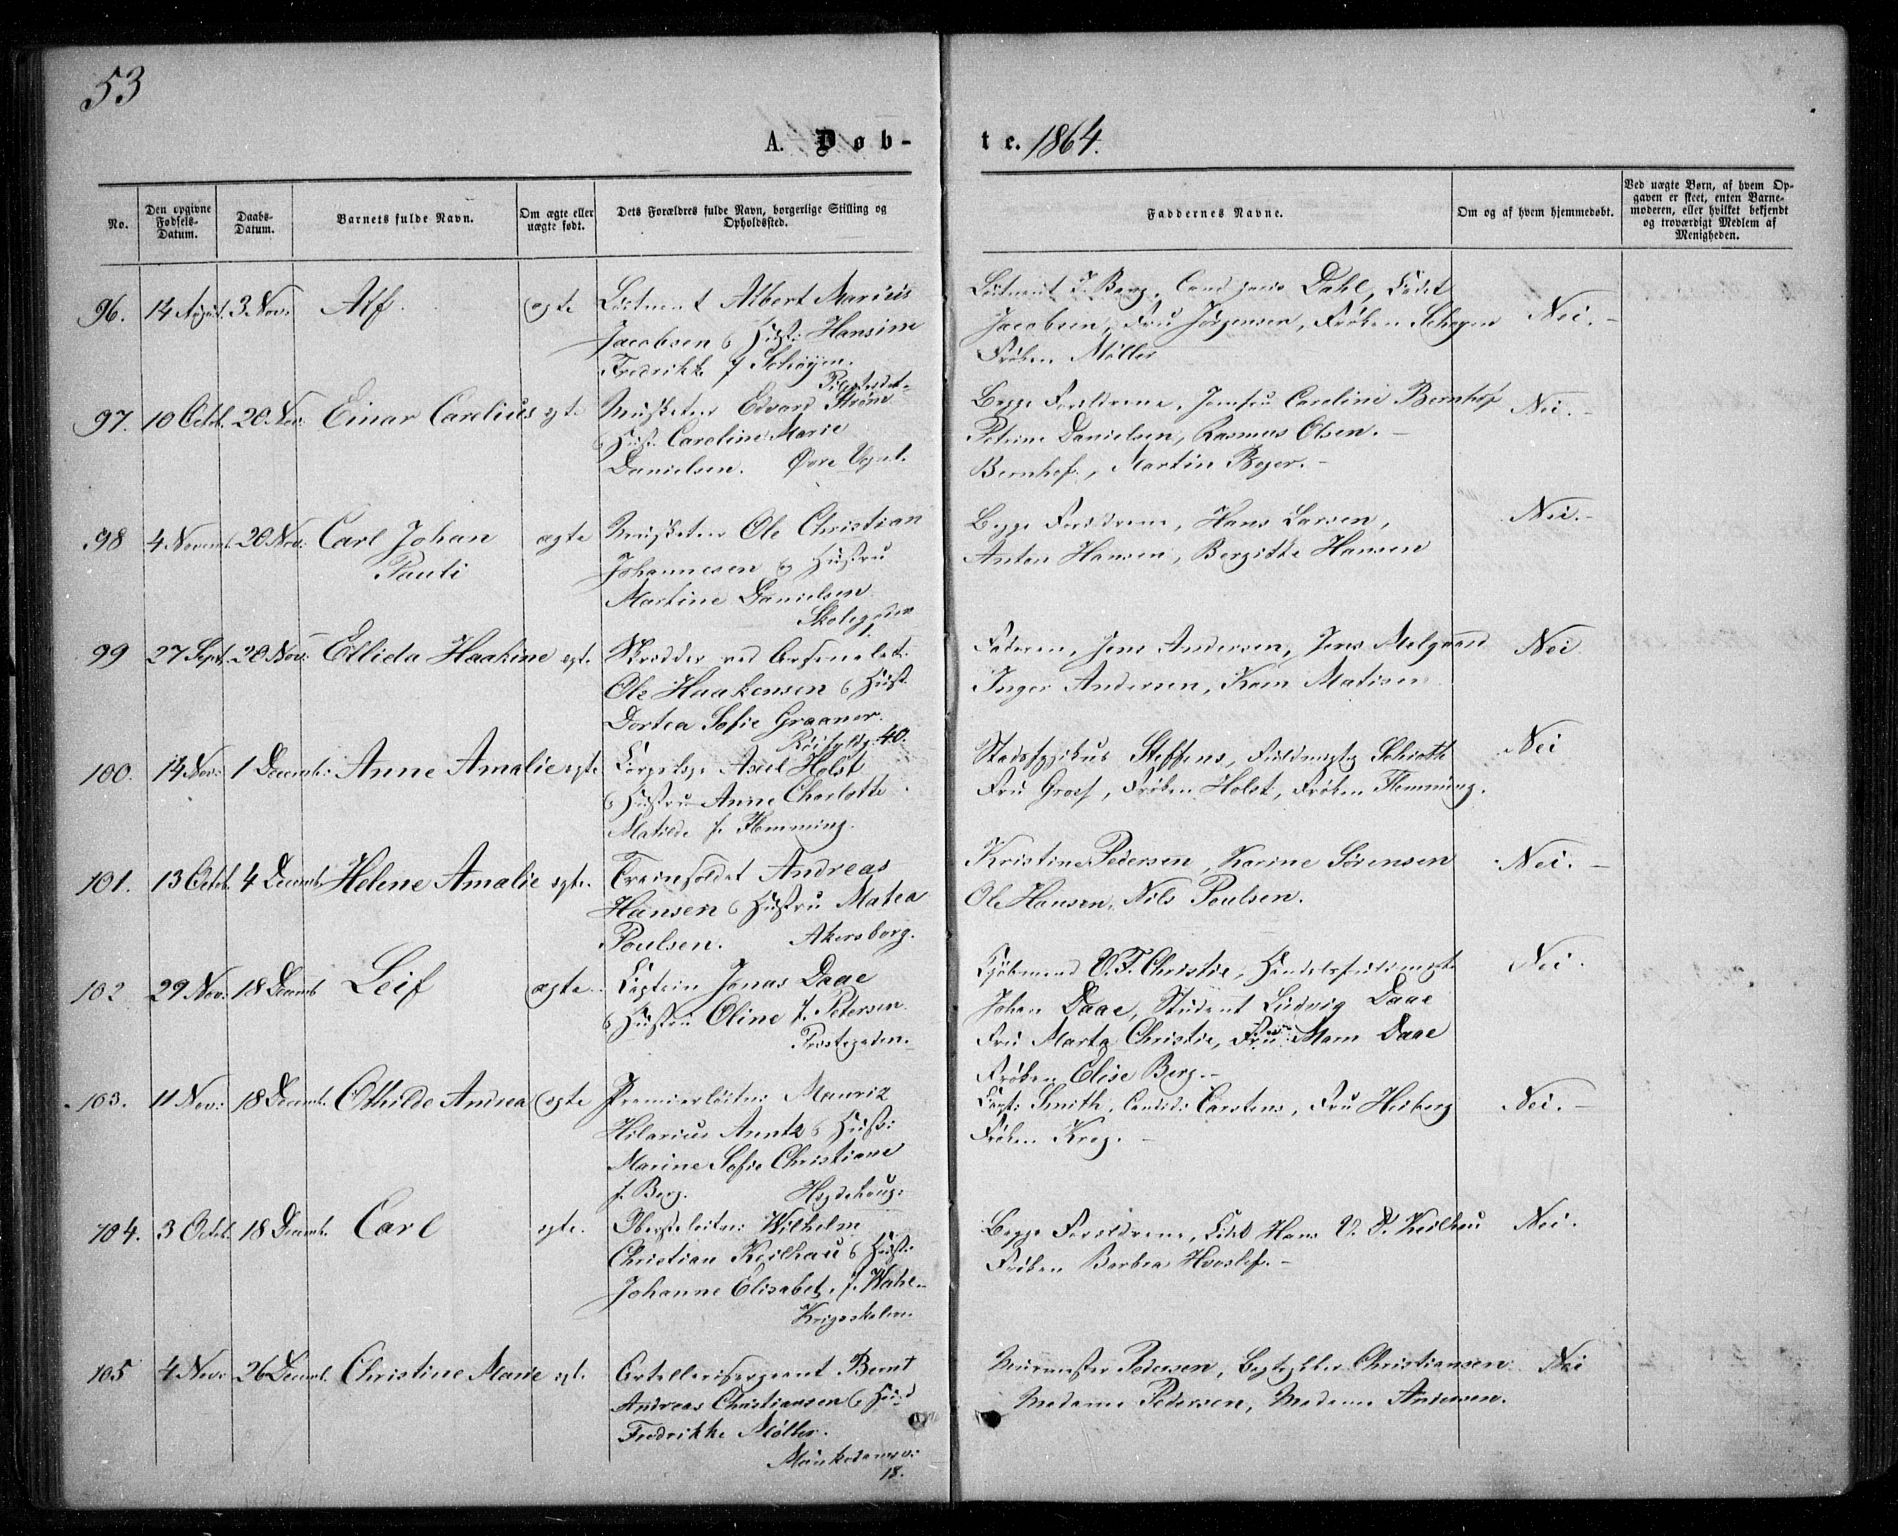 53
A. Døb-
te. 1864.
No.
Den opgivne Fødsels-Datum.
Daabs-Datum.
Barnets fulde Navn.
Om ægte eller uægte født.
Dets Forældres fulde Navn, borgerlige Stilling og Opholdssted.
Faddernes Navne.
Om og af hvem hjemmedøbt.
Ved uægte Børn, af hvem Op-
gaven er skeet, enten Barne-
moderen, eller hvilket bekjendt
og troværdigt Medlem af
Menigheden.
96. 14 August 3 Nov: Alf. ægte Løitnent Albert Marius
Jacobsen & Hust: Hansine
Fredrikke f Schøyen.
Pilestrædet
Løitnent Berg, Cand Dahl,
Jacobsen, Fru Jørgensen, Frøken
Frøken Møller
Nei.
97. 10 Octob. 20 Nov: Einar Carelius ægte Musketer Edvard Strøm
& Hust: Caroline Marie
Danielsen. Øvre
Begge Forældrene, Jomfru Caroline Bernhof
Petrine Danielsen, Rasmus Olsen.
Bernhof, Martin Beyer.
Nei.
98 4 Novemb. 20 Nov: Carl Johan
Pauli
ægte Musketer Ole Christian
Johannesen & Hustru
Martine Danielsen
Skolegaden
Begge Forældrene, Hans Larsen,
Anton Hansen, Bergitte Hansen
Nei.
99 27 Sept. 20 Nov: Ellida Haakine ægte Skrædder ved Arsenalet
Ole Haakensen & Hust.
Dortea Sofie Graaner.
40.
Faderen, Jens Andersen, Jens Melgaard
Inger Andersen, Karn Matisen
Nei
100. 14 Nov: 1 Decemb: Anne Amalie ægte Corpslæge Axel Holst
& Hustru Anne Charlotte
Matilde f. Flemming.
Stadsfysikus Steffens, Fuldmægtig Schiøtt
Fru Groef, Frøken Holst, Frøken Flemming.
Nei
101. 13 Octob. 4 Decemb. Helene Amalie ægte. Trainsoldat Andreas
Hansen & Hustru Matea
Poulsen. Akersborg.
Kristine Pedersen, Karine Sørensen
Ole Hansen, Nils Poulsen.
Nei.
102 29 Nov: 18 Decemb Leif ægte Captein Jonas Daae
& Hustru Oline f. Petersen.
Prostegaden.
Kjøbmand V. F. Christie, Handelsfuldmægt.
Johan Daae, Student Ludvig Daae
Fru Marta Christie, Fru Daae
Frøken Elise Berg.
Nei.
103. 11 Nov: 18 Decemb. Othilde Andrea ægte Premierløitn: Mauritz
Hilarius Arntz & Hust:
Marine Sofie Christiane
f. Berg. Hegdehaug:
Capt: Smith, Candid: Carstens, Fru Heiberg
Frøken Krog.
Nei.
104. 3 Octob. 18 Decemb. Carl ægte. Oberstløitn: Wilhelm
Christian Keilhau & Hust:
Johanne Elisabet, f. Wahl
Krigsskolen.
Begge Forældrene, Hans V. Keilhau
Frøken Barbra
Nei.
105 4 Nov: 26 Decemb. Christine Marie ægt. Artellerisergeant Bernt
Andreas Christiansen & Hust
Fredrikke Møller.
Munkedamsv:
18.
Murmester Pedersen, Christiansen
Madame Pedersen, Madame Andersen.
Nei